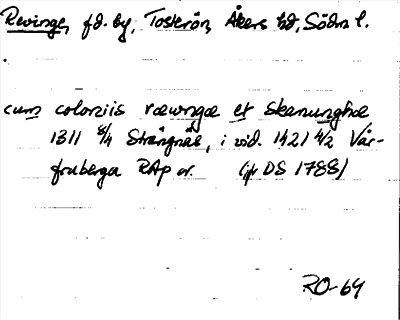 Revinge, fd. by, Tosterön, Åkers hd, Södm l.
cum coloniis ræwngæ et skænunghæ
1311 8/4 Strängnäs, i vid. 1421 4/2 Vår-
fruberga RAp or. (jfr DS 1788)
RO-64